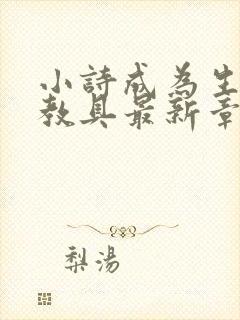 小詩成為生
教具最新章
梨湯